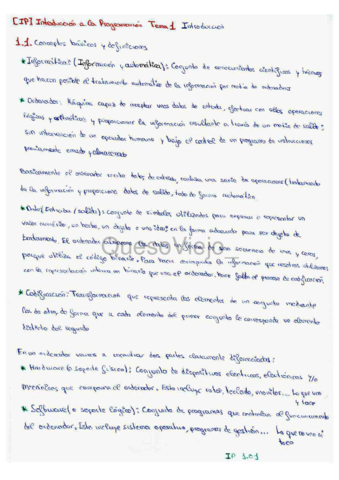 [IP] Introducción a la Programación Tema 1 Introducción
1.1. Conceptos básicos y definiciones
* Informática: (Información y automática): Conjunto de conocimientos científicos y técnicos
que hacen posible el tratamiento automático de la información por medio de ordenadores
* Ordenador: Máquina capaz de aceptar unos datos de entrada, efectuar con ellos operaciones
lógicas y aritméticas y proporcionar la información resultante a través de un medio de salida:
sin intervención de un operador humano y bajo el control de un programa de instrucciones
previamente creado y almacenado
Básicamente el ordenador recibe datos de entrada, realiza una serie de operaciones (tratamiento
de la información y proporciona datos de salida, todo de forma automática
* Dato (Entrada / salida): Conjunto de símbolos utilizados para expresar o representar un
valor numérico, un hecho, un objeto o una idea; en la forma adecuada para ser objeto de
tratamiento. El ordenador los datos en forma de una secuencia de unos y ceros,
porque utiliza el código binario. Para hacer la información que nosotros utilizamos
con la representación interna en binario que usa el ordenador, hace falta el proceso de codificación.
QuesoViejo
* Codificación: Transformación que representa los elementos de un conjunto mediante
los de otro, de forma que a cada elemento del primer conjunto le corresponda un elemento
distinto del segundo
En un ordenador vamos a encontrar dos partes claramente diferenciadas:
* Hardware (o soporte físico): Conjunto de dispositivos electrónicos y/o
mecánicos que componen el ordenador. Esto incluye ratón, teclado, monitor... Lo que veo
y toco
* Software (o soporte lógico): Conjunto de programas que controlan el funcionamiento
del ordenador. Esto incluye sistema operativo, programas de gestión... Lo que no veo ni
toco
IP 1.0.1